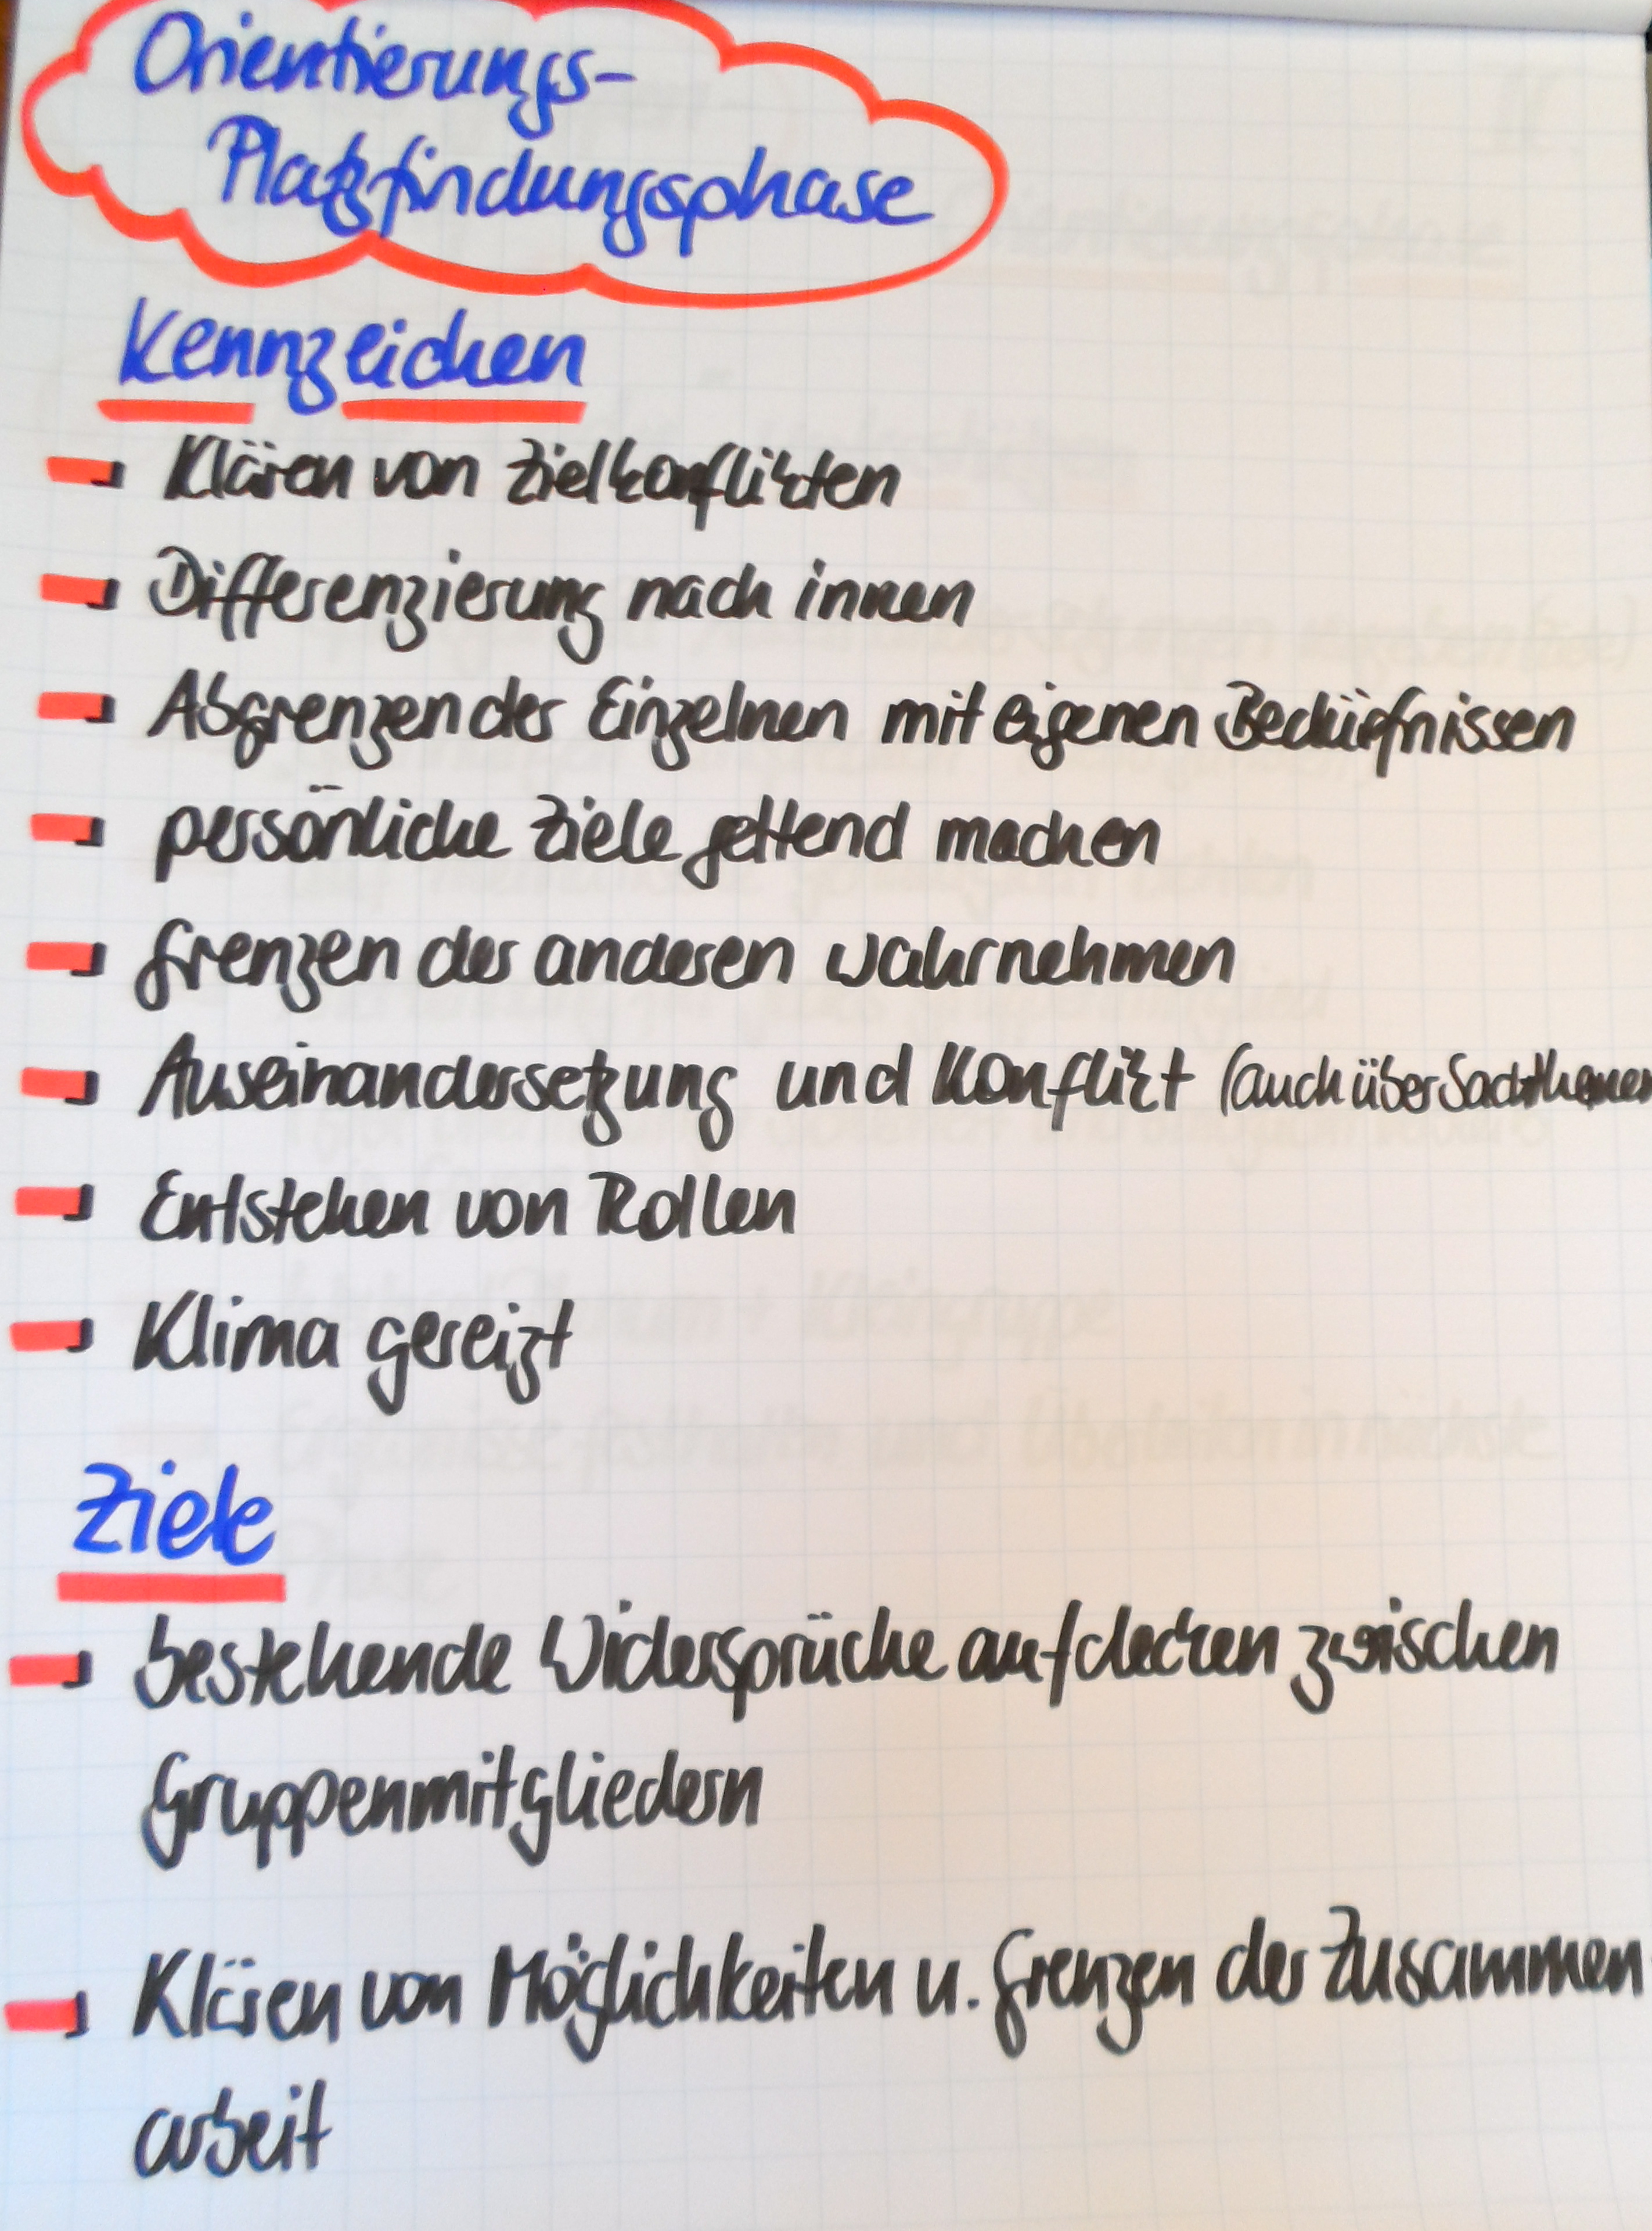 Orientierungs-
Platzfindungsphase
Kennzeichen
Klären von Zielkonflikten
Differenzierung nach innen
Abgrenzen des Einzelnen mit eigenen Bedürfnissen
persönliche Ziele geltend machen
Grenzen des anderen wahrnehmen
Auseinandersetzung und Konflikt (auch über Sachthemen
Entstehen von Rollen
Klima gereizt
Ziele
bestehende Widersprüche aufdecken zwischen
Gruppenmitgliedern
Klären von Möglichkeiten u. Grenzen der Zusammen
arbeit